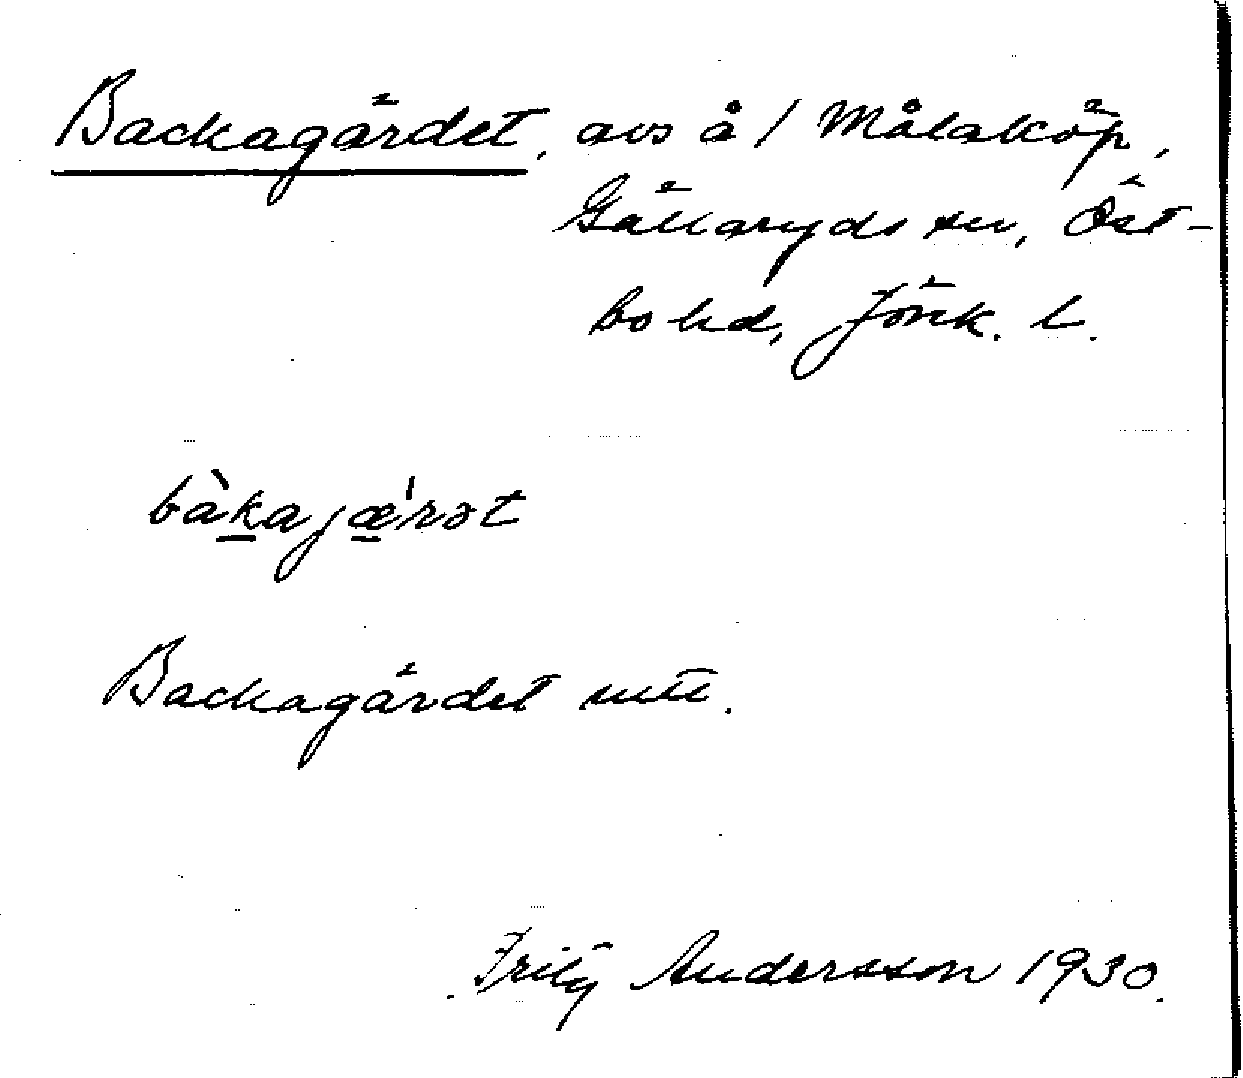 Backagärdet, avs å / Målaköp,
Gällaryds sn, Öst-
bo hd, Jönk. l.
bàkajæ'rət
Backagärdet
Fritz Andersson 1930.